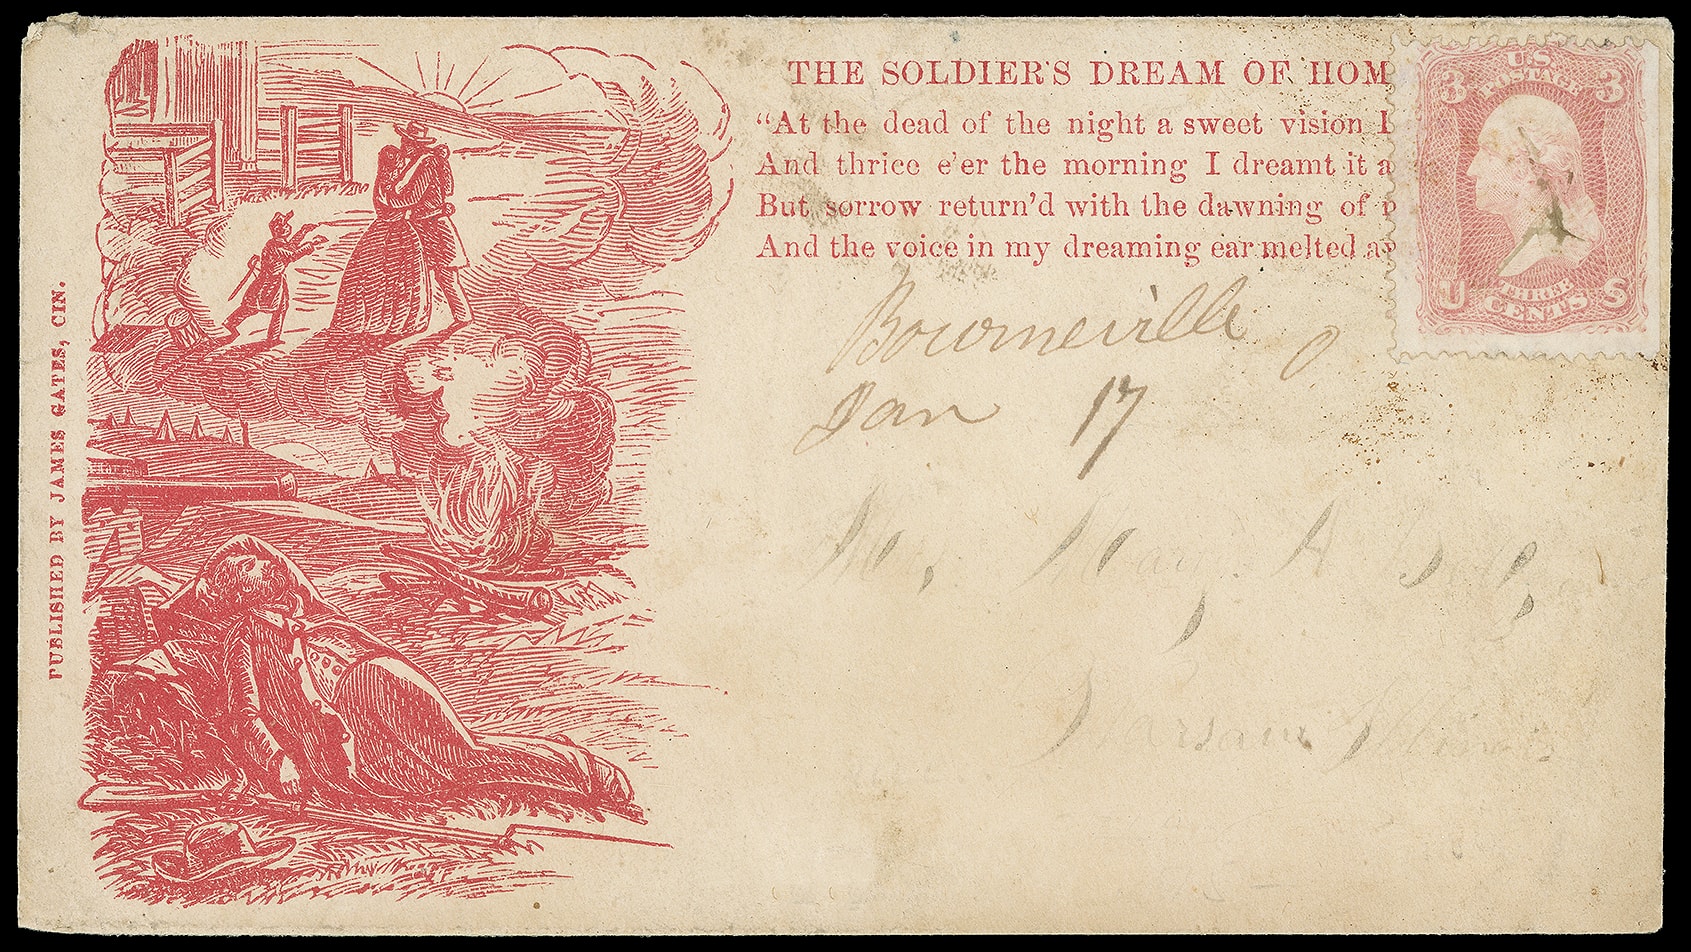 THE SOLDIER'S DREAM OF HOM
"At the dead of the night a sweet vision I
And thrice e'er the morning I dreamt it a
But sorrow return'd with the dawning of
And the voice in my dreaming ear melted a
3 U.S. 3
POSTAGE
THREE
U CENTS S
Bourneville O
Jan 17
PUBLISHED BY JAMES GATES, CIN.